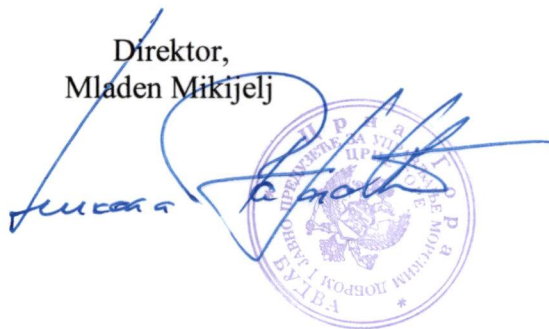 Direktor,
Mladen Mikijelj
Црна Гора
ЈАВНО ПРЕДУЗЕЋЕ ЗА УПРАВЉАЊЕ МОРСКИМ ДОБРОМ
ЦРНЕ ГОРЕ
БУДВА